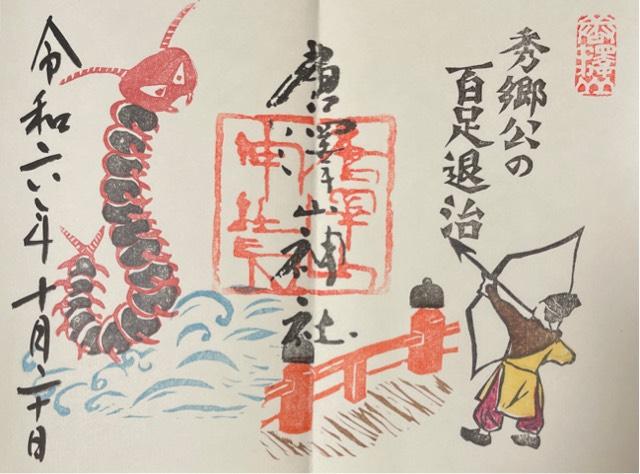 唐澤山
秀郷公の
百足退治
唐澤山神社
令和六年十月二十日